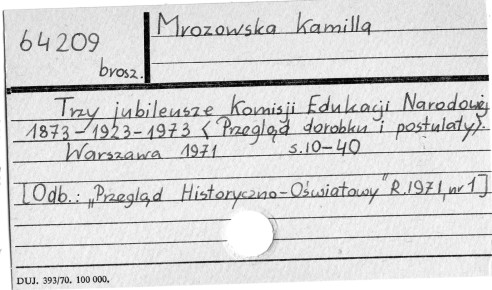 64209
brosz.
Mrozowska Kamilla
Trzy jubileusze Komisji Edukacji Narodowej
1873-1923-1973 (Przegląd dorobku i postulaty).
Warszawa 1971 s.10-40
[Odb.: „Przegląd Historyczno-Oświatowy" R.1971, nr 1]
DUJ. 393/70. 100 000.